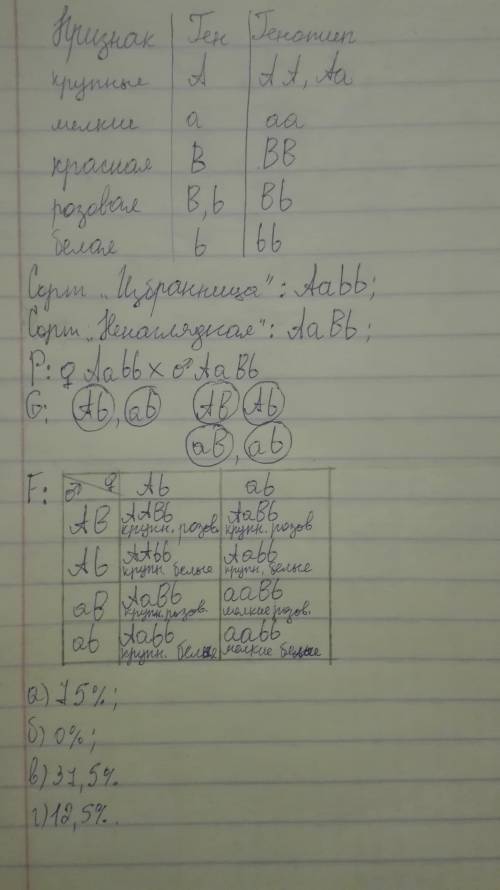 Признак Ген Генотип
крупные A AA, Aa
мелкие a aa
красная B BB
розовая B,b Bb
белая b bb
Сорт „Избранница": Aabb;
Сорт „Ненаглядная": AaBb;
P: ♀ Aabb × ♂ AaBb
G: Ab, ab AB Ab
aB, ab
F: ♂ ♀ Ab ab
AB AABb AaBb
крупн. розов. крупн. розов
Ab AAbb Aabb
крупн. белые крупн. белые
aB AaBb aaBb
крупн. розов. мелкие розов.
ab Aabb aabb
крупн. белые мелкие белые
а) 75%;
б) 0%;
в) 37,5%.
г) 12,5%.